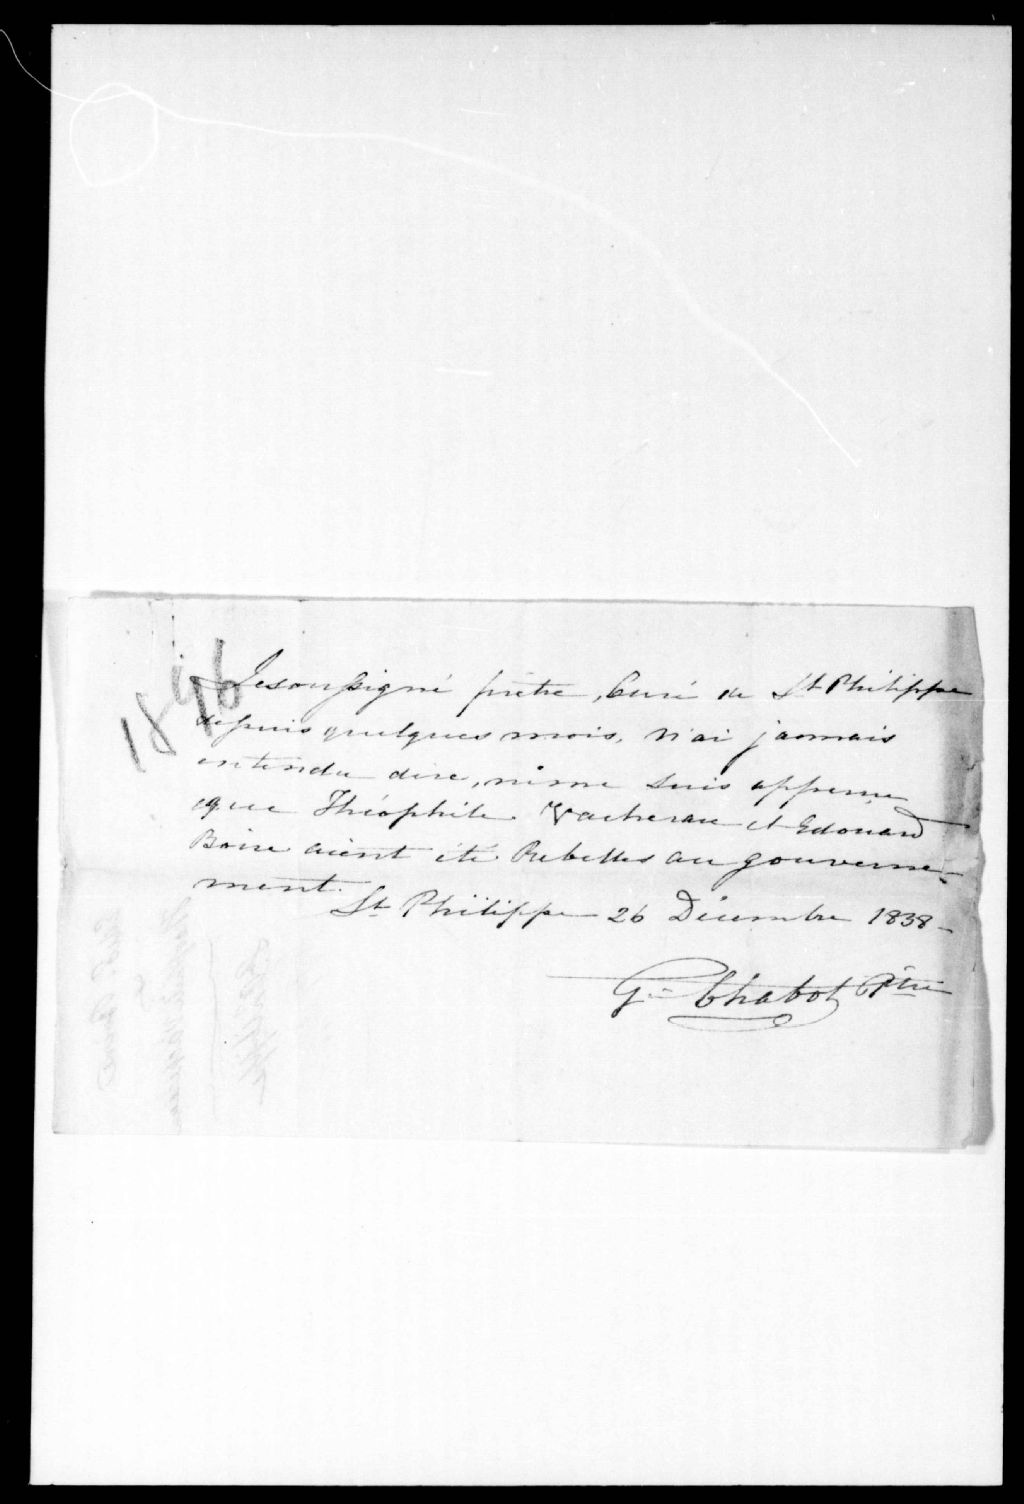 1846
Le soussigné prêtre, Curé de St Philippe
depuis quelques mois, n'ai jamais
entendu dire, ni me suis apperçu
que Théophile Vacherau et Edouard
Boire aient été Rebelles au gouverne-
ment.
St Philippe 26 Décembre 1838-
Chabot Ptre